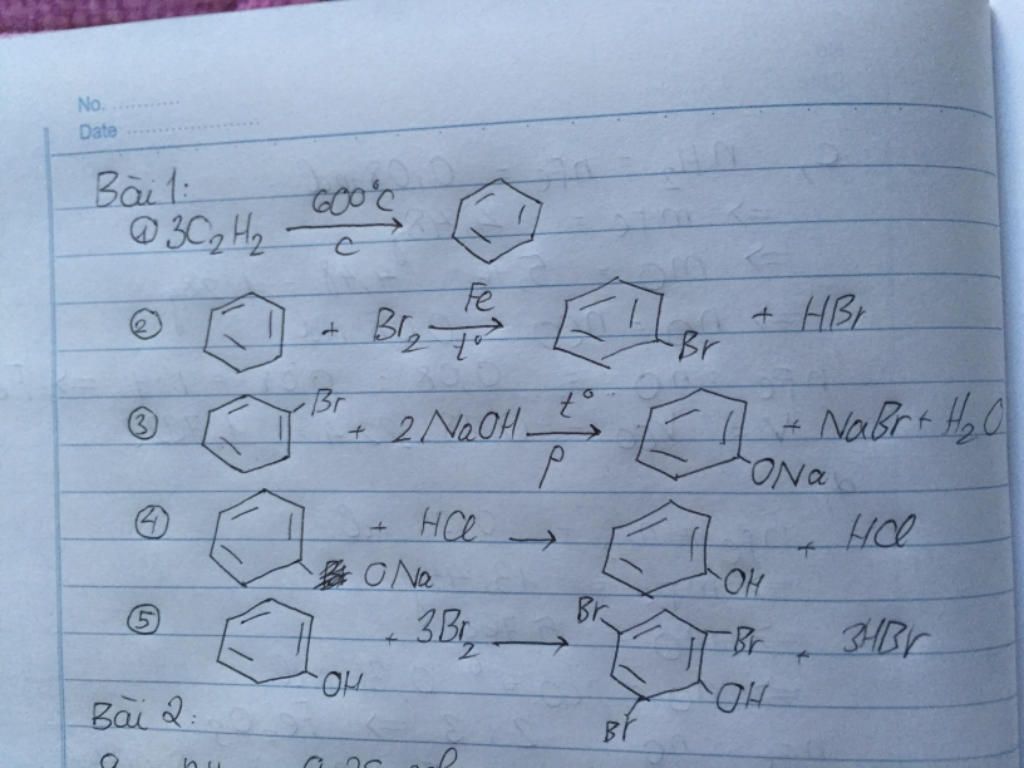 No.
Date
Bài 1:
① 3C₂H₂ 600°C C
② + Br₂ Fe t° Br + HBr
③ Br + 2NaOH t° p ONa + NaBr + H₂O
④ ONa + HCl → OH + HCl
⑤ OH + 3Br₂ → Br Br Br OH + 3HBr
Bài 2: